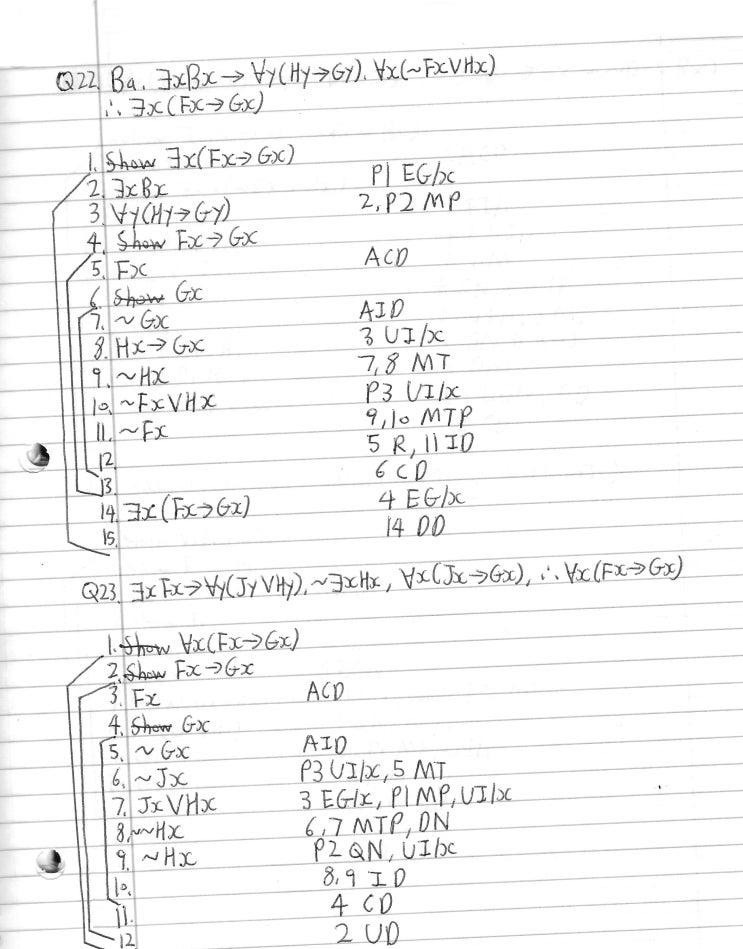 Q22. Ba. ∃xBx→∀y(Hy→Gy). ∀x(~FxVHx)
∴ ∃x(Fx→Gx)
1. Show ∃x(Fx→Gx)
2. ∃xBx P1 EG/x
3. ∀y(Hy→Gy) 2, P2 MP
4. Show Fx→Gx
5. Fx ACD
6. Show Gx
7. ~Gx AID
8. Hx→Gx 3 UI/x
9. ~Hx 7,8 MT
10. ~FxVHx P3 UI/x
11. ~Fx 9,10 MTP
12. 5 R, 11 ID
13. 6 CD
14. ∃x(Fx→Gx) 4 EG/x
15. 14 DD
Q23. ∃xFx→∀y(JyVHy), ~∃xHx, ∀x(Jx→Gx), ∴ ∀x(Fx→Gx)
1. Show ∀x(Fx→Gx)
2. Show Fx→Gx
3. Fx ACD
4. Show Gx
5. ~Gx AID
6. ~Jx P3 UI/x, 5 MT
7. JxVHx 3 EG/x, P1 MP, UI/x
8. ~~Hx 6,7 MTP, DN
9. ~Hx P2 QN, UI/x
10. 8,9 ID
11. 4 CD
12 2 UD